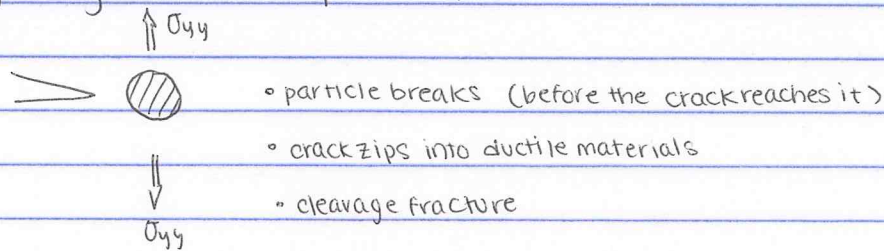 σyy
• particle breaks (before the crack reaches it)
• crack zips into ductile materials
• cleavage fracture
σyy